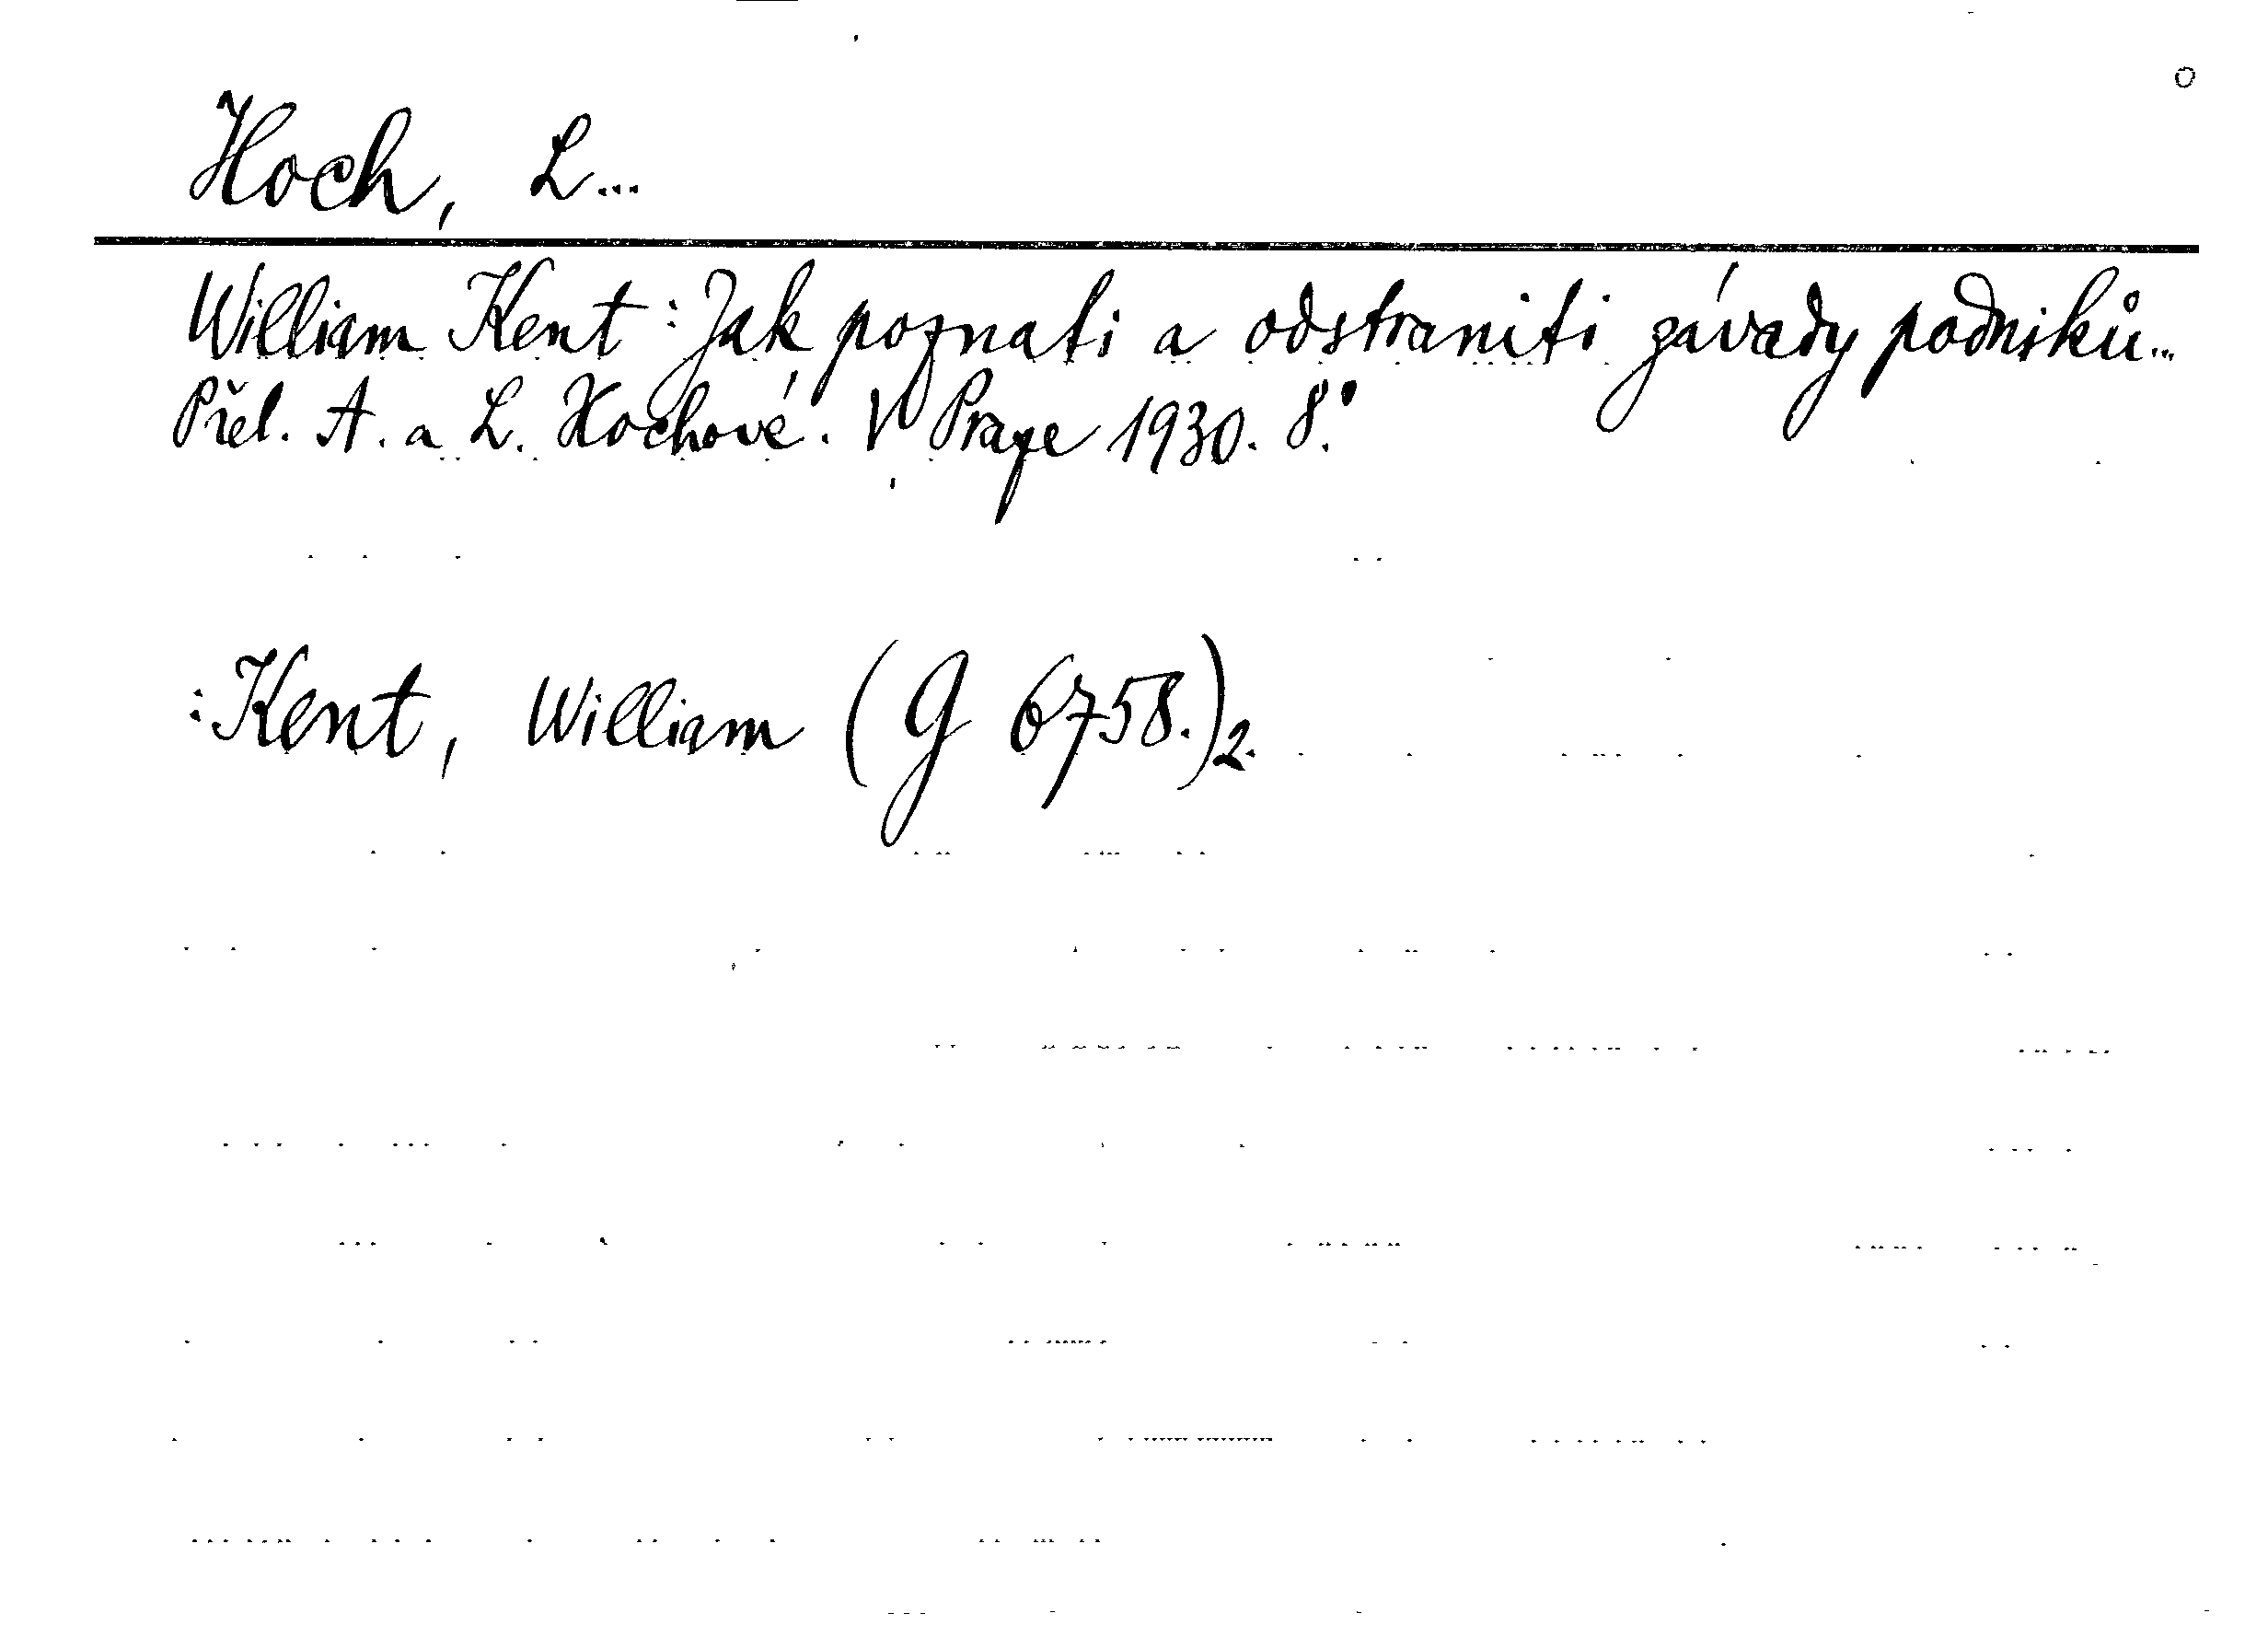 Hoch, L...
William Kent: Jak poznati a odstraniti závady podniků...
Přel. A. a L. Hochové. V Praze 1930. 8°.
:Kent, William (G 6758.)2.